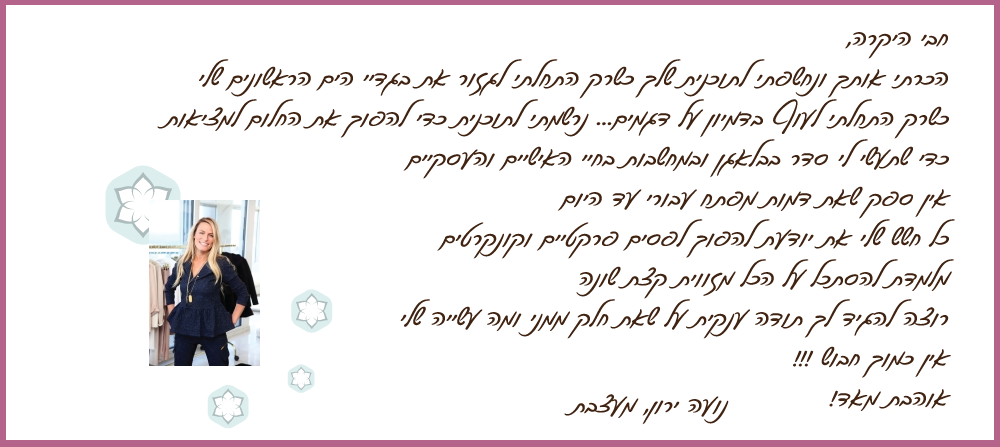 חבי היקרה,
הכרתי אותך ונחשפתי לתוכנית שלך כשרק התחלתי לגזור את בגדיי הים הראשונים שלי
כשרק התחלתי לעוף בדמיון על דגמים... נרשמתי לתוכנית כדי להפוך את החלום למציאות
כדי שתעשי לי סדר בבלאגן ובמחשבות בחיי האישיים והעסקיים
אין ספק שאת דמות מפתח עבורי עד היום
כל חשש שלי את יודעת להפוך לפסים פרקטיים וקונקרטים
מלמדת להסתכל על הכל מזווית קצת שונה
רוצה להגיד לך תודה ענקית על שאת חלק ממני ומה עשייה שלי
אין כמוך חבוש !!!
אוהבת מאד!
נועה ירון, מעצבת